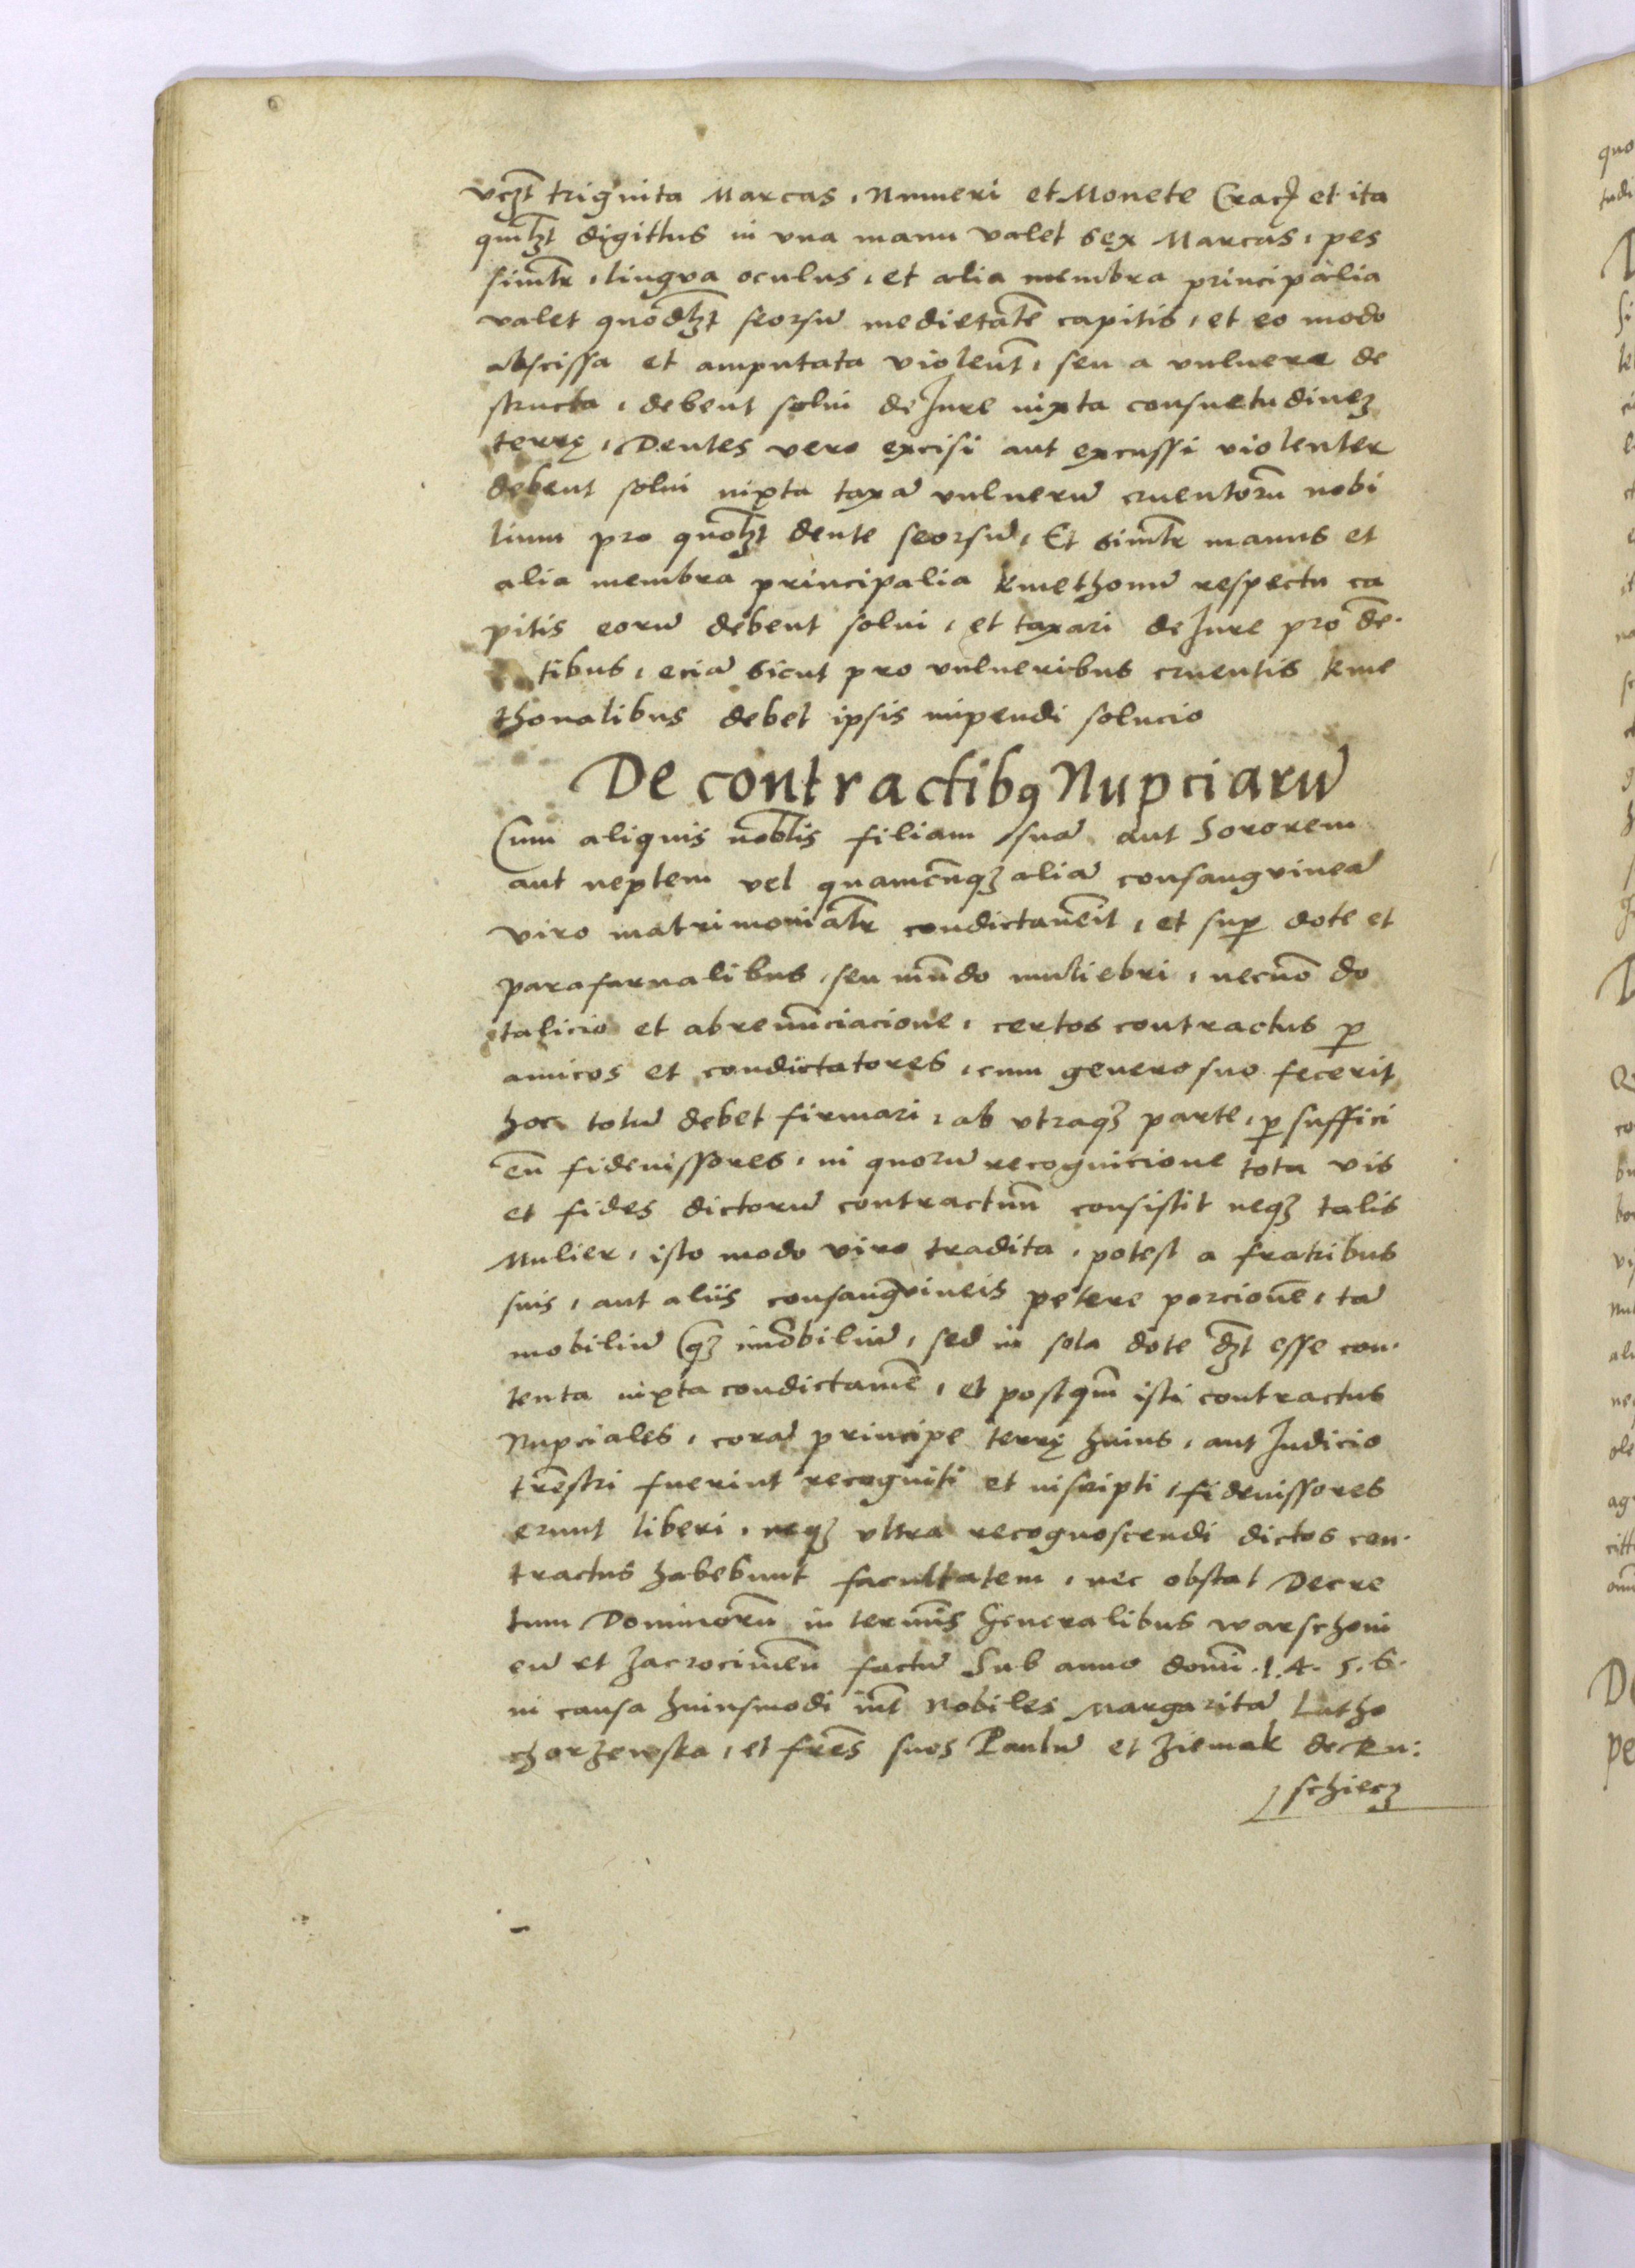 vczt trigintа Marcas, Numeri et Monete Crac et ita
quilzt digittus in vna manu valet sex Marcas, pes
simlr, lingva oculus, et alia membra principalia
valet quodlzt seorsū medietatē capitis, et eo modo
abscissa et amputata violent, seu a vulnere de
structa, debent solui de Jure iuxta consuetudinez
terrę, Dentes vero excisi aut excussi violenter
debent solui iuxta taxā vulnerū cruentorū nobi
lium pro quolzt dente seorsū, Et similr manus et
alia membra principalia kmethonū respectu ca
pitis eorū debent solui, et taxari de Jure pro dē.
tibus, eciā sicut pro vulneribus cruentis kme
thonalibus debet ipsis impendi solucio
De contractibꝰ Nupciarū
Cum aliquis nobłis filiam suā aut Sororem
aut neptem vel quamcūqz aliā consangvineā
viro matrimonialr condictauēit, et sup dote et
parafarnalibus, seu mūdo muliebri, necnō do
talicio et abrenūciacione, certos contractus p
amicos et condictatores, cum genero suo fecerit
hoc totū debet firmari, ab vtraqz parte, p suffici
eñ fideiussores, in quorū recognicione tota vis
et fides dictorū contractuū consistit neqz talis
Mulier, isto modo viro tradita, potest a fratribus
suis, aut aliis consangvineis petere porcionē, tā
mobiliū qz imobiliū, sed in sola dote dzt esse con.
tenta iuxta condictamē, et postqm isti contractus
Nupciales, corā principe terrę huius, aut Judicio
trēstri fuerint recogniti et inscripti, fideiussores
erunt liberi, neqz vltra recognoscendi dictos con.
tractus habebunt facultatem, nec obstat Decre
tum Dominorū in terminis Generalibus warschoui
eñ et Zacrocimeñ factū Sub anno domī .1.4.5.6.
in causa huiusmodi int Nobiles Margaritā Lutho
charzewska, et frēs suos Paulū et Ziemak de Ku:
schiecz